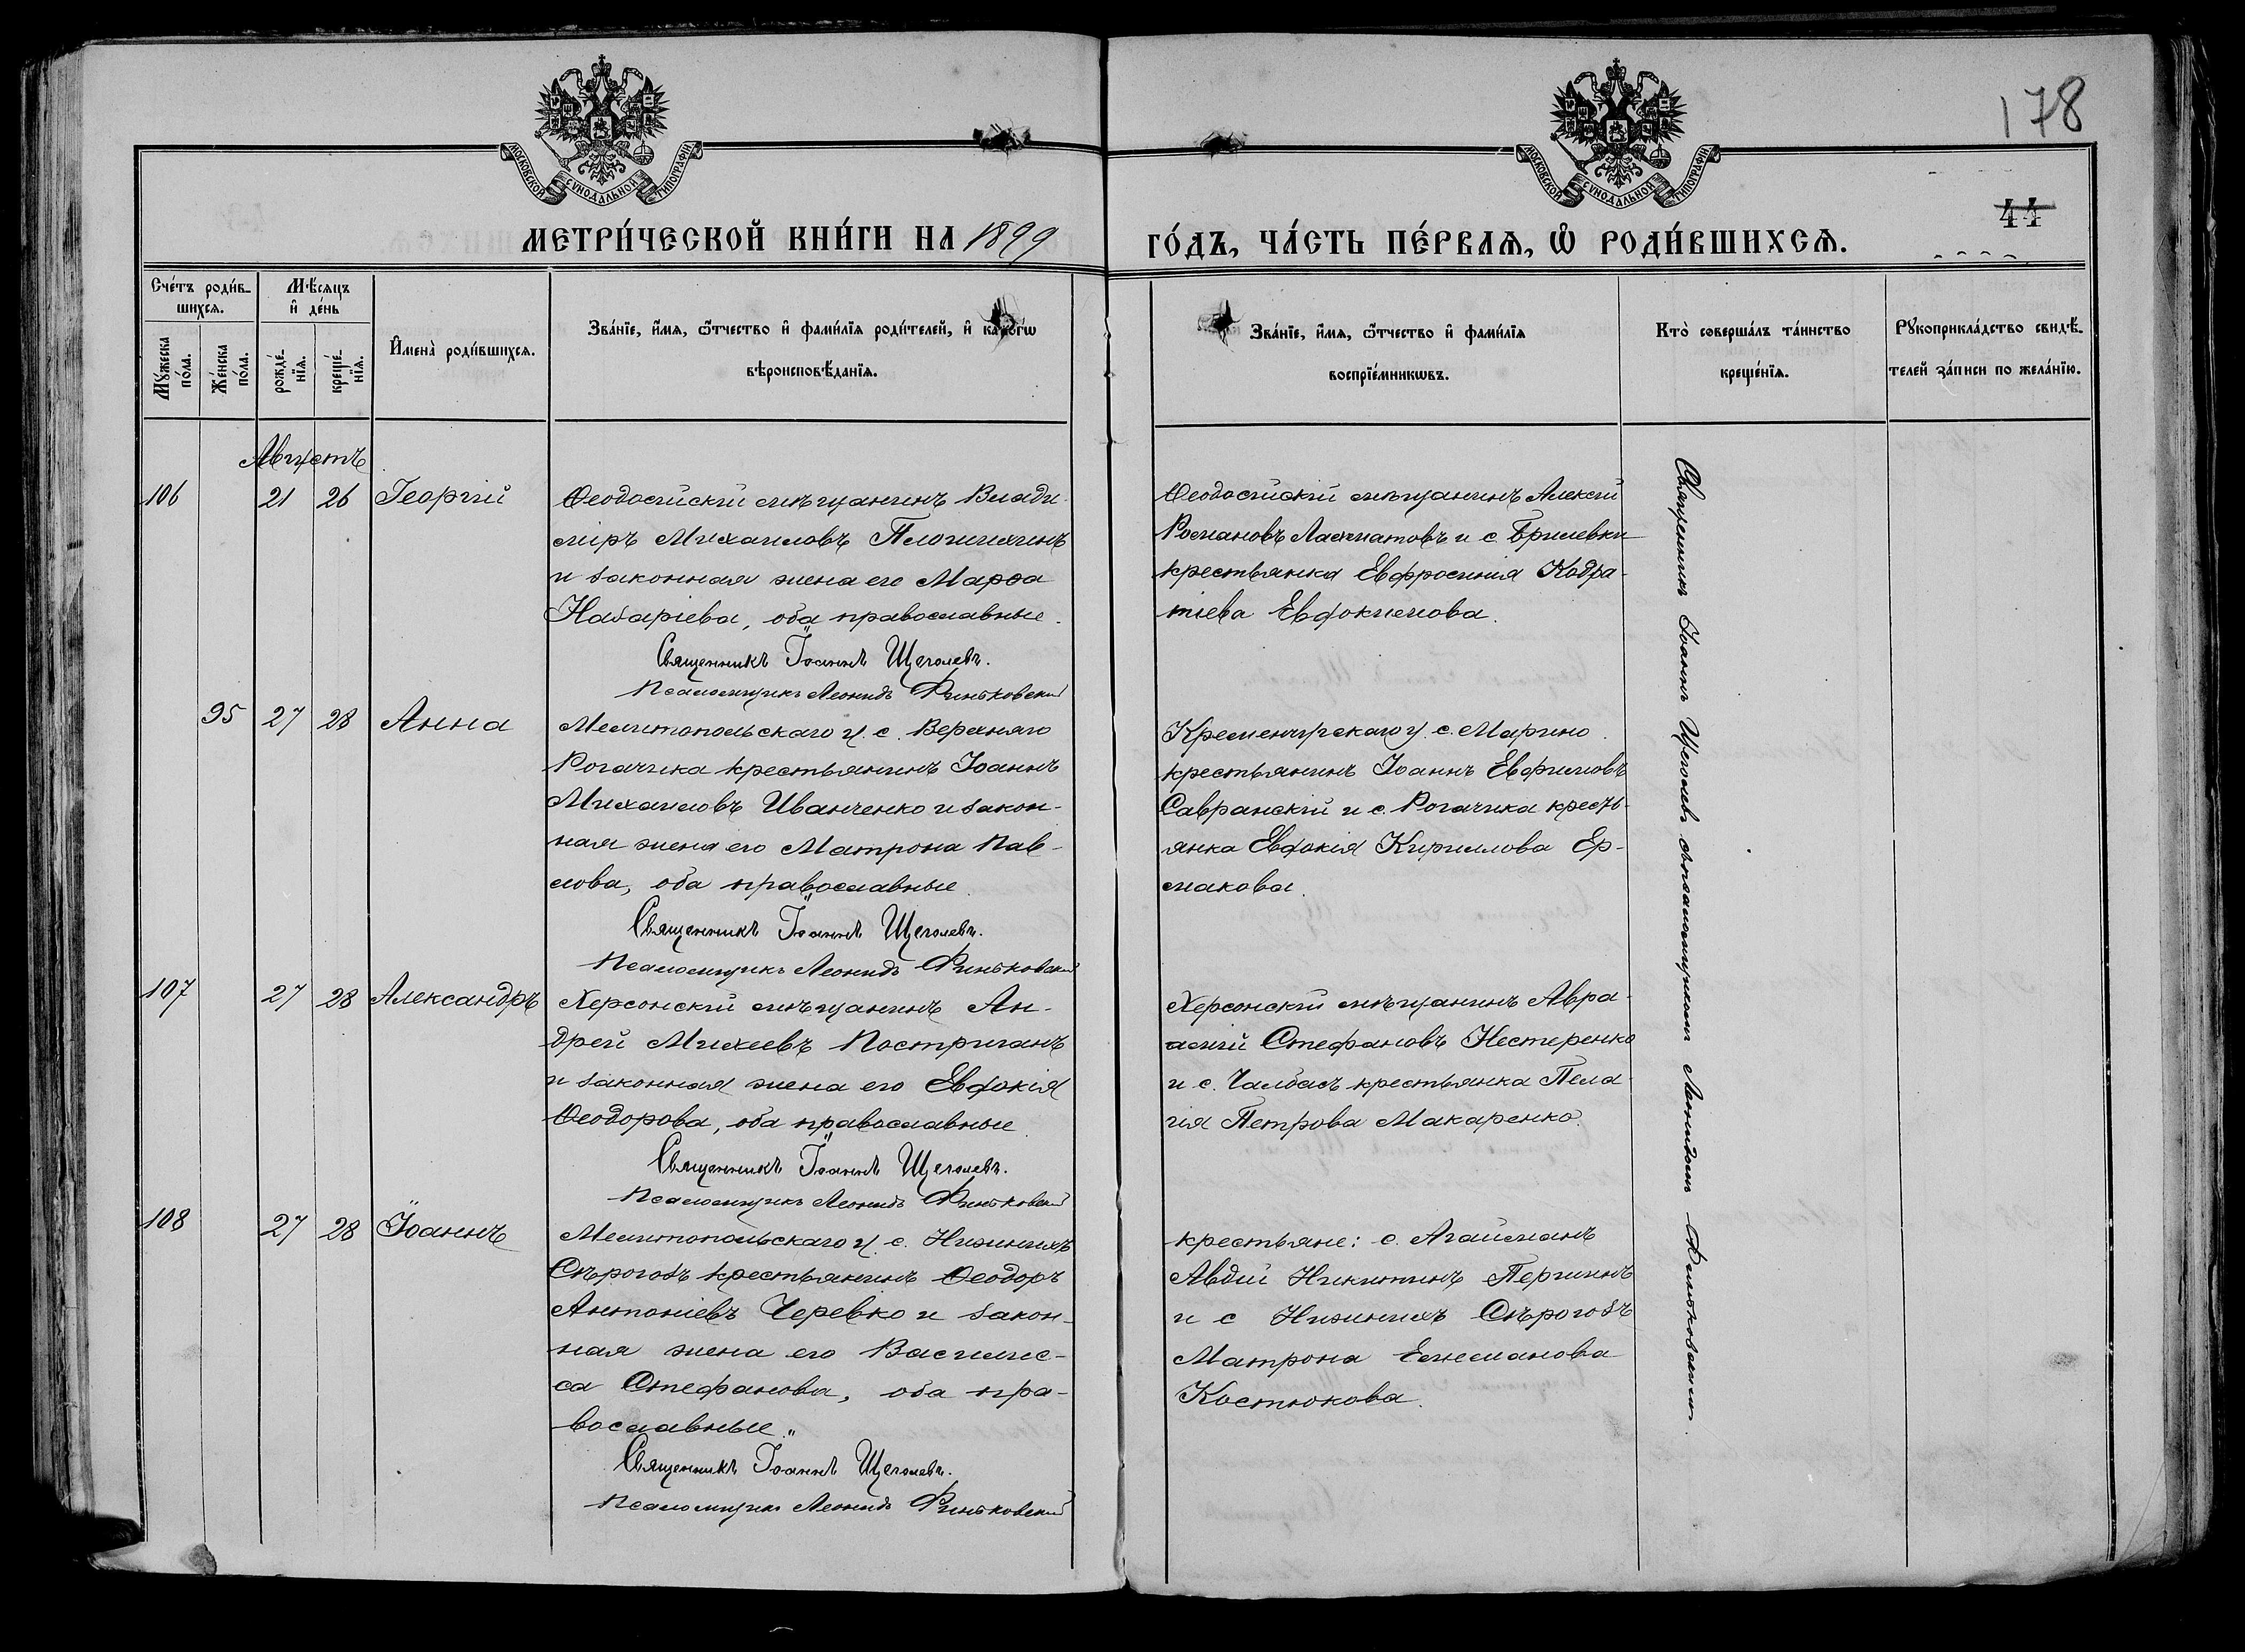 178
МОСКОВСКОЙ СУНОДАЛЬНОЙ ТИПОГРАФІИ
МОСКОВСКОЙ СУНОДАЛЬНОЙ ТИПОГРАФІИ
44
МЕТРИ́ЧЕСКОЙ КНИ́ГИ НА 1899
ГО́ДЪ, ЧА́СТЬ ПЕ́РВАѦ, Ѽ РОДИ́ВШИХСѦ.
Сче́тъ роди́в-
шихсѧ.
Мѣ́сѧцъ
и де́нь
Мꙋ́жеска
по́ла.
Же́нска
по́ла.
рожде́-
нїѧ.
креще́-
нїѧ.
Имена̀ роди́вшихсѧ.
Зва́нїе, и́мѧ, ѻ҆́тчество и фами́лїѧ роди́телей, и како́гѡ
вѣроисповѣ́данїѧ.
Зва́нїе, и́мѧ, ѻ҆́тчество и фами́лїѧ
воспрїе́мникѡвъ.
Кто̀ соверша́лъ та́инство
креще́нїѧ.
Рꙋкоприкла́дство свидѣ́-
телей за́писи по жела́нїю.
Августъ
106 21 26 Георгій
Ѳеодосійскій мѣщанинъ Влади-
міръ Михаиловъ Плошихинъ
и законная жена его Марѳа
Назаріева, оба православные.
Священникъ Іоаннъ Щеголевъ.
Псаломщикъ Леонидъ Финьковскій
Ѳеодосійскій мѣщанинъ Алексій
Романовъ Лахматовъ и с. Брилевки
крестьянка Евфросинія Кодра-
тіева Евдокимова.
95 27 28 Анна
Мелитопольскаго у. с. Верхняго
Рогачика крестьянинъ Іоаннъ
Михаиловъ Иванченко и закон-
ная жена его Матрона Пав-
лова, оба православные.
Священникъ Іоаннъ Щеголевъ.
Псаломщикъ Леонидъ Финьковскій
Кременчугскаго у. с. Марино
крестьянинъ Іоаннъ Евфимовъ
Савранскій и с. Рогачика кресть-
янка Евдокія Кириллова Ер-
макова.
107 27 28 Александръ
Херсонскій мѣщанинъ Ан-
дрей Михеевъ Постриганъ
и законная жена его Евдокія
Ѳеодорова, оба православные.
Священникъ Іоаннъ Щеголевъ.
Псаломщикъ Леонидъ Финьковскій
Херсонскій мѣщанинъ Авра-
амій Стефановъ Нестеренко
и с. Чалбасъ крестьянка Пела-
гія Петрова Макаренко.
108 27 28 Іоаннъ
Мелитопольскаго у. с. Нижнихъ
Сѣрогозъ крестьянинъ Ѳеодоръ
Антоніевъ Черевко и закон-
ная жена его Василис-
са Стефанова, оба пра-
вославные.
Священникъ Іоаннъ Щеголевъ.
Псаломщикъ Леонидъ Финьковскій
крестьяне: с. Агайманъ
Авдій Никитинъ Першинъ
и с Нижнихъ Сѣрогозъ
Матрона
Костюкова.
Священникъ Іоаннъ Щеголевъ съ псаломщикомъ Леонидомъ Финьковскимъ.